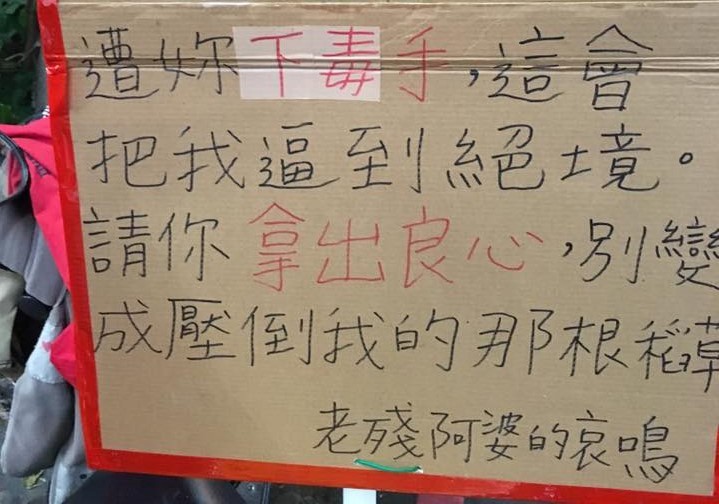 遭妳下毒手,這會
把我逼到絕境。
請你拿出良心,別變
成壓倒我的那根稻草
老殘阿婆的哀鳴